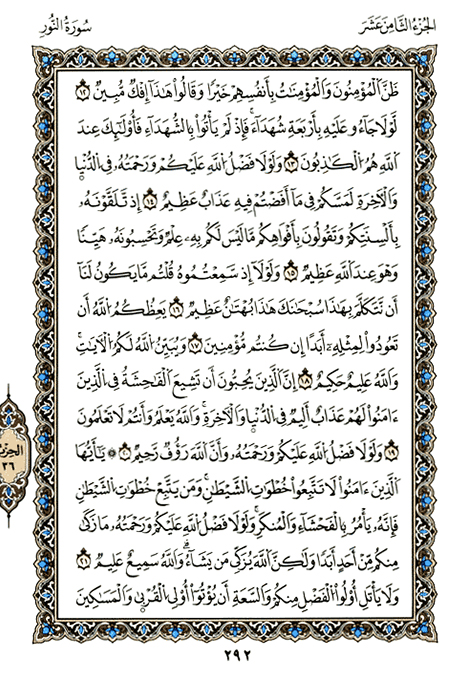 الجُزْءُ الثَّامِنَ عَشَرَ
سُورَةُ النُّورِ
ظَنَّ الْمُؤْمِنُونَ وَالْمُؤْمِنَاتُ بِأَنفُسِهِمْ خَيْرًا وَقَالُوا هَٰذَا إِفْكٌ مُّبِينٌ ١٢
لَّوْلَا جَاءُو عَلَيْهِ بِأَرْبَعَةِ شُهَدَاءَ ۚ فَإِذْ لَمْ يَأْتُوا بِالشُّهَدَاءِ فَأُولَٰئِكَ عِندَ
اللَّهِ هُمُ الْكَاذِبُونَ ١٣ وَلَوْلَا فَضْلُ اللَّهِ عَلَيْكُمْ وَرَحْمَتُهُ فِي الدُّنْيَا
وَالْآخِرَةِ لَمَسَّكُمْ فِي مَا أَفَضْتُمْ فِيهِ عَذَابٌ عَظِيمٌ ١٤ إِذْ تَلَقَّوْنَهُ
بِأَلْسِنَتِكُمْ وَتَقُولُونَ بِأَفْوَاهِكُم مَّا لَيْسَ لَكُم بِهِ عِلْمٌ وَتَحْسَبُونَهُ هَيِّنًا
وَهُوَ عِندَ اللَّهِ عَظِيمٌ ١٥ وَلَوْلَا إِذْ سَمِعْتُمُوهُ قُلْتُم مَّا يَكُونُ لَنَا
أَن نَّتَكَلَّمَ بِهَٰذَا سُبْحَانَكَ هَٰذَا بُهْتَانٌ عَظِيمٌ ١٦ يَعِظُكُمُ اللَّهُ أَن
تَعُودُوا لِمِثْلِهِ أَبَدًا إِن كُنتُم مُّؤْمِنِينَ ١٧ وَيُبَيِّنُ اللَّهُ لَكُمُ الْآيَاتِ ۚ
وَاللَّهُ عَلِيمٌ حَكِيمٌ ١٨ إِنَّ الَّذِينَ يُحِبُّونَ أَن تَشِيعَ الْفَاحِشَةُ فِي الَّذِينَ
ءَامَنُوا لَهُمْ عَذَابٌ أَلِيمٌ فِي الدُّنْيَا وَالْآخِرَةِ ۚ وَاللَّهُ يَعْلَمُ وَأَنتُمْ لَا تَعْلَمُونَ
١٩ وَلَوْلَا فَضْلُ اللَّهِ عَلَيْكُمْ وَرَحْمَتُهُ وَأَنَّ اللَّهَ رَءُوفٌ رَّحِيمٌ ٢٠ ۞ يَا أَيُّهَا
الَّذِينَ ءَامَنُوا لَا تَتَّبِعُوا خُطُوَاتِ الشَّيْطَانِ ۚ وَمَن يَتَّبِعْ خُطُوَاتِ الشَّيْطَانِ
فَإِنَّهُ يَأْمُرُ بِالْفَحْشَاءِ وَالْمُنكَرِ ۚ وَلَوْلَا فَضْلُ اللَّهِ عَلَيْكُمْ وَرَحْمَتُهُ مَا زَكَىٰ
مِنكُم مِّنْ أَحَدٍ أَبَدًا وَلَٰكِنَّ اللَّهَ يُزَكِّي مَن يَشَاءُ ۗ وَاللَّهُ سَمِيعٌ عَلِيمٌ ٢١
وَلَا يَأْتَلِ أُولُوا الْفَضْلِ مِنكُمْ وَالسَّعَةِ أَن يُؤْتُوا أُولِي الْقُرْبَىٰ وَالْمَسَاكِينَ
الحزب
٣٦
٢٩٢